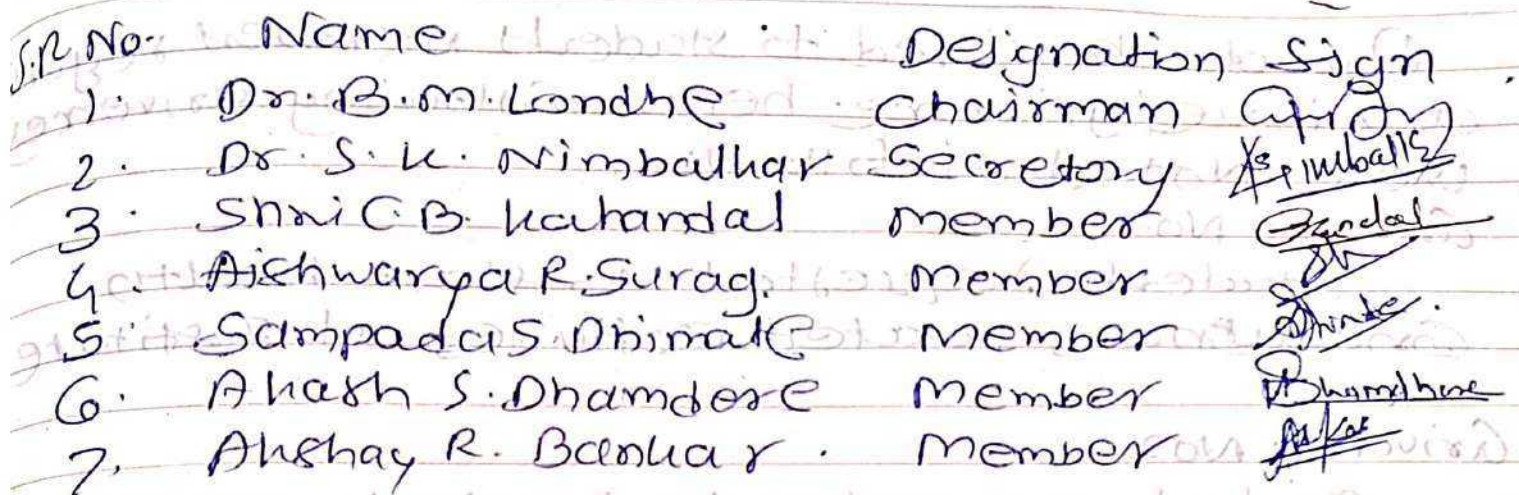 S.R No. Name Designation Sign
1. Dr. B. M. Londhe Chairman
2. Dr. S. K. Nimbalkar Secretory
3. Shri C. B. Kahandal member
4. Aishwarya R. Surag. member
5. Sampada S. Dhimate member
6. Akash S. Dhamdere member
7. Akshay R. Bankar. member